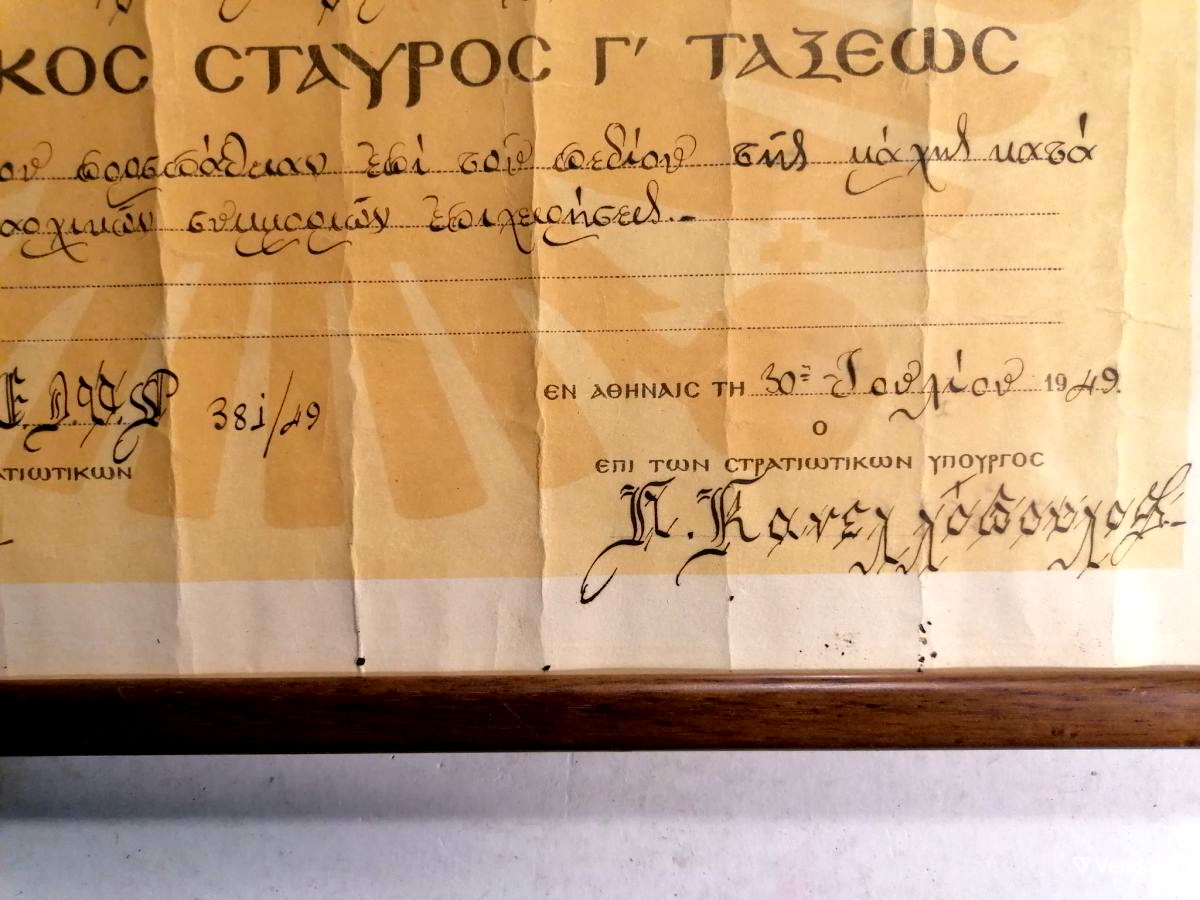 ΚΟΣ ΣΤΑΥΡΟΣ Γ' ΤΑΞΕΩΣ
ου προσπάθειαν ἐπί τοῦ πεδίου τῆς μάχης κατά
αρχικῶν συμμοριῶν ἐπιχειρήσεις.-
381/49
ΕΝ ΑΘΗΝΑΙΣ ΤΗ 30ῃ Ἰουλίου 1949.
Ο
ΑΤΙΩΤΙΚΩΝ
ΕΠΙ ΤΩΝ ΣΤΡΑΤΙΩΤΙΚΩΝ ΥΠΟΥΡΓΟΣ
Π. Κανελλόπουλος.-